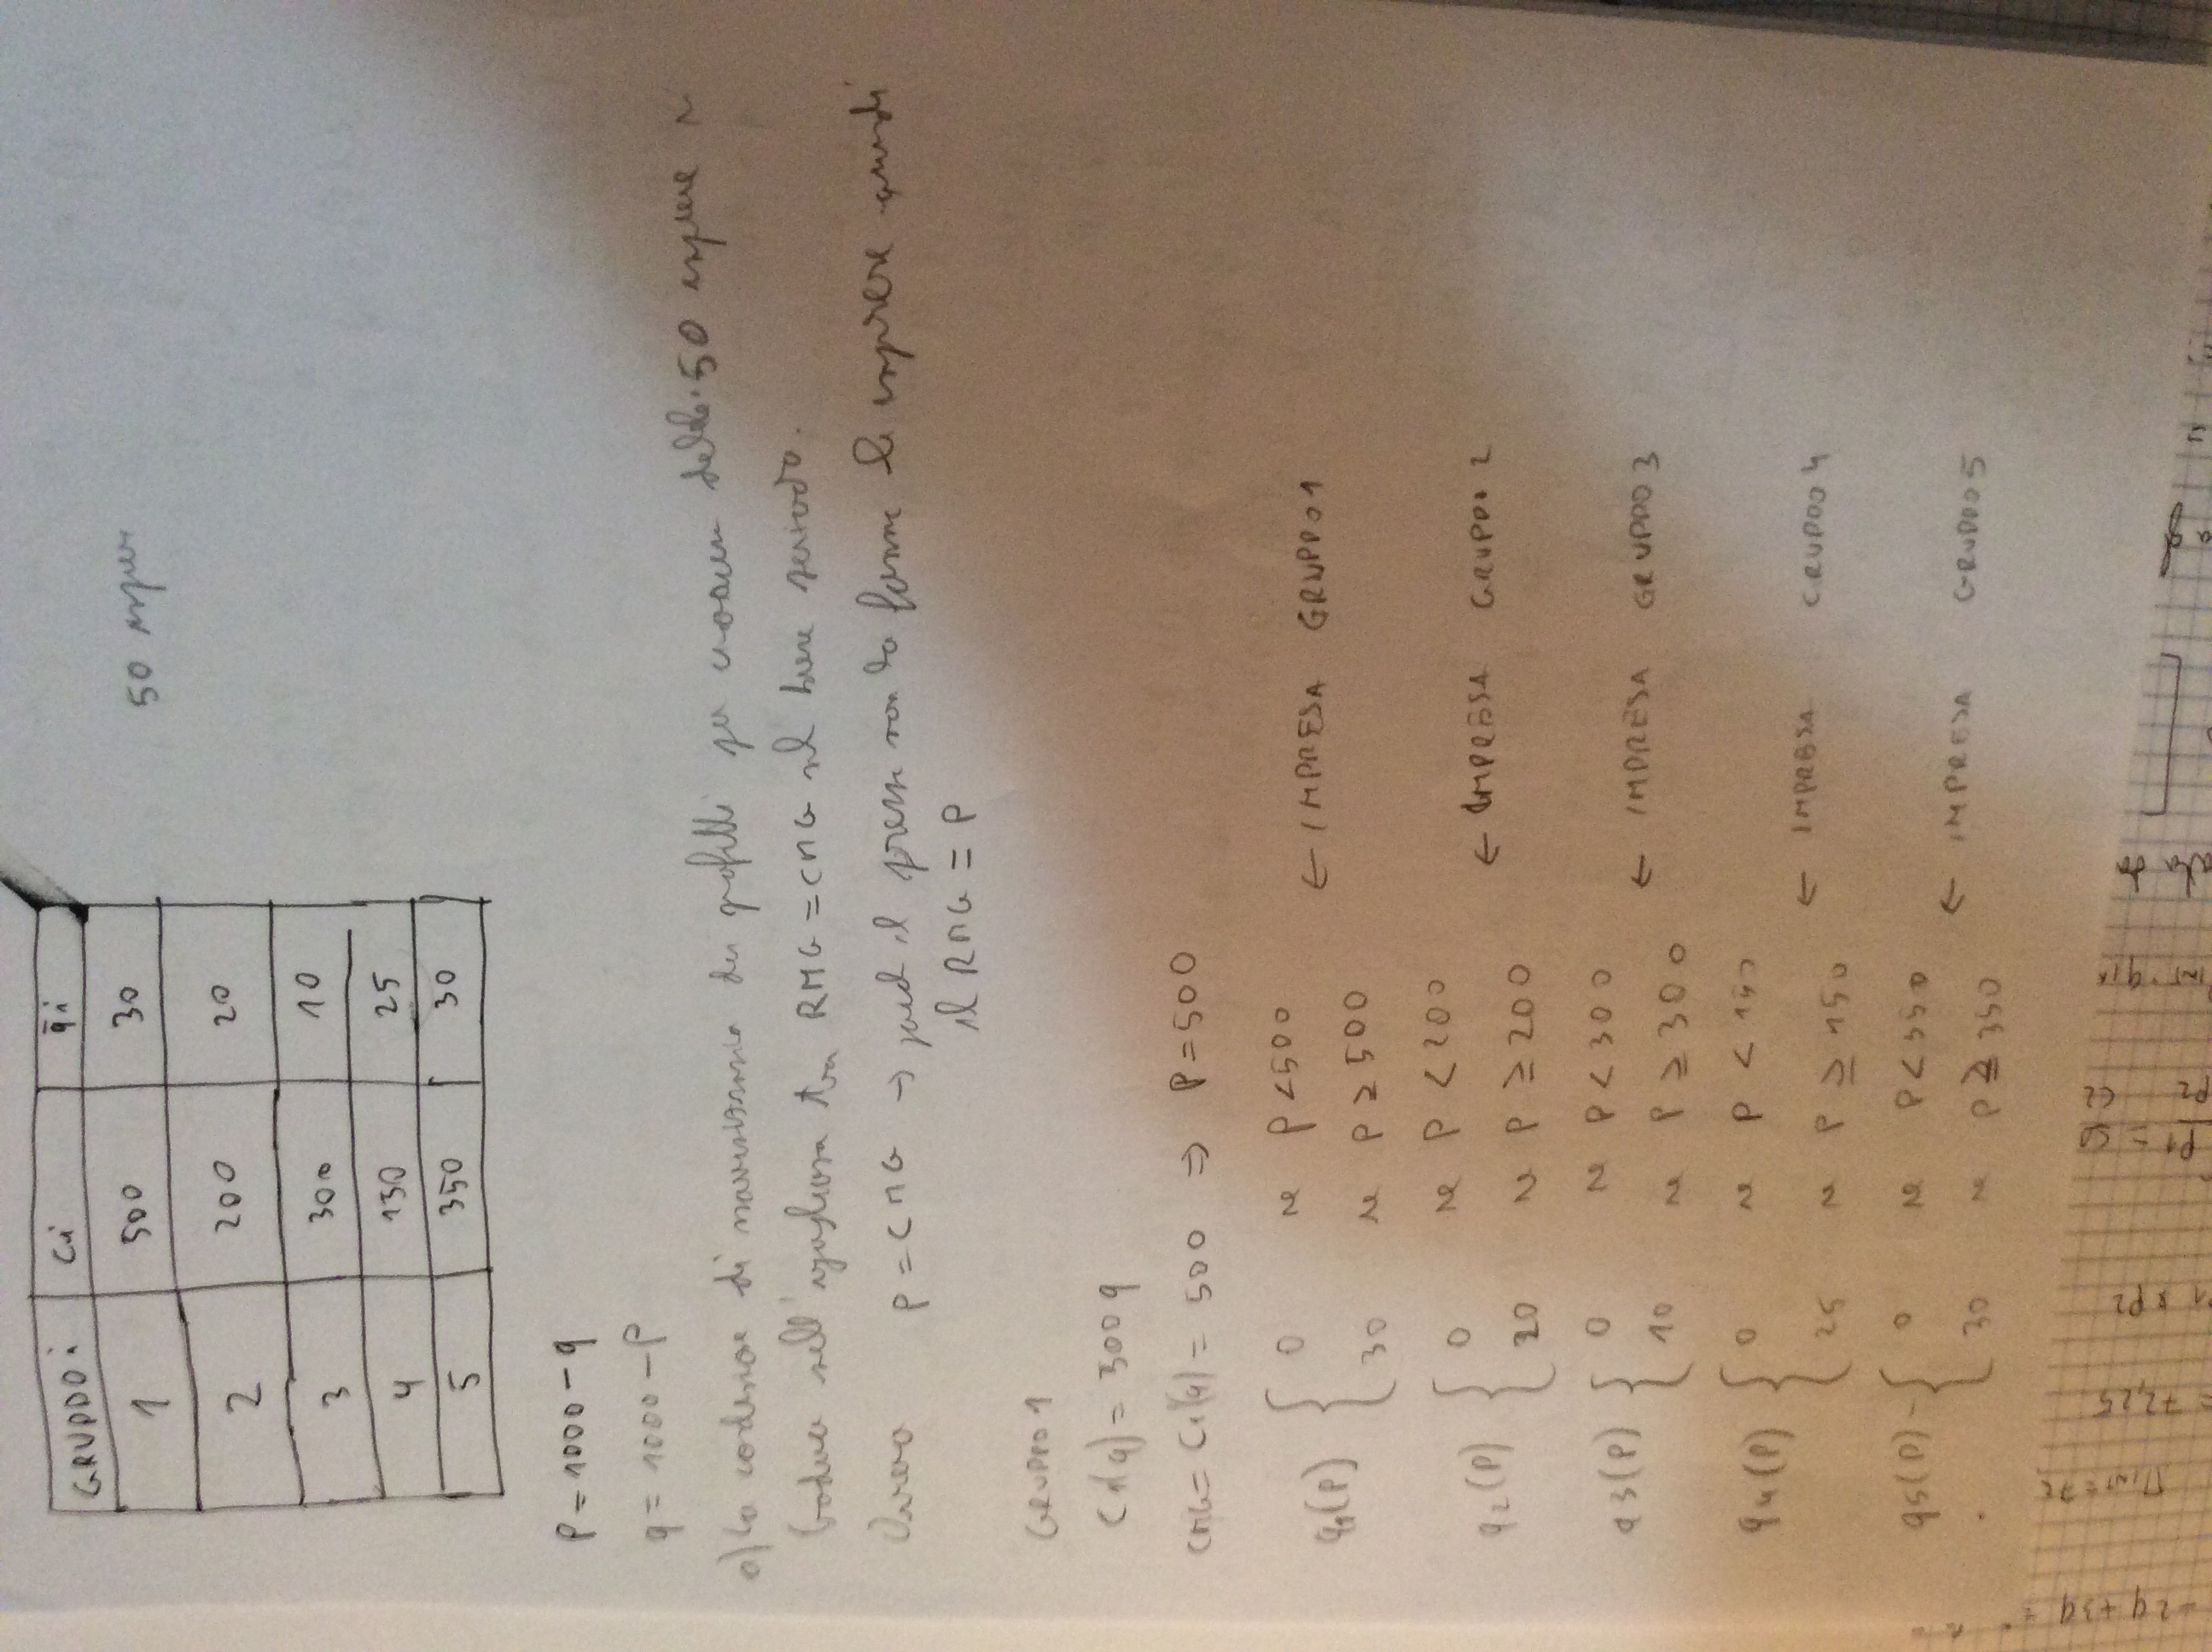 GRUPPO i Ci q̄i
1 500 30
2 200 20
3 300 10
4 150 25
5 350 30
50 impre
P = 1000 - q
q = 1000 - P
a) la condizione di massimizzazione dei profitti per ciascuna delle 50 imprese si
traduce nell' uguaglianza tra RMG = CMG nel breve periodo.
Ovvero P = CMG → perché il prezzo non lo fanno le imprese quindi
il RMG = P
GRUPPO 1
C1(q) = 300q
CMG = C1'(q) = 500 ⇒ P = 500
q1(P) { 0 se P < 500
30 se P ≥ 500 ← IMPRESA GRUPPO 1
q2(P) { 0 se P < 200
20 se P ≥ 200 ← IMPRESA GRUPPO 2
q3(P) { 0 se P < 300
10 se P ≥ 300 ← IMPRESA GRUPPO 3
q4(P) { 0 se P < 150
25 se P ≥ 150 ← IMPRESA GRUPPO 4
q5(P) - { 0 se P < 350
30 se P ≥ 350 ← IMPRESA GRUPPO 5
-2q + 3q =
= 72,25
P1 = 50
P2 C2